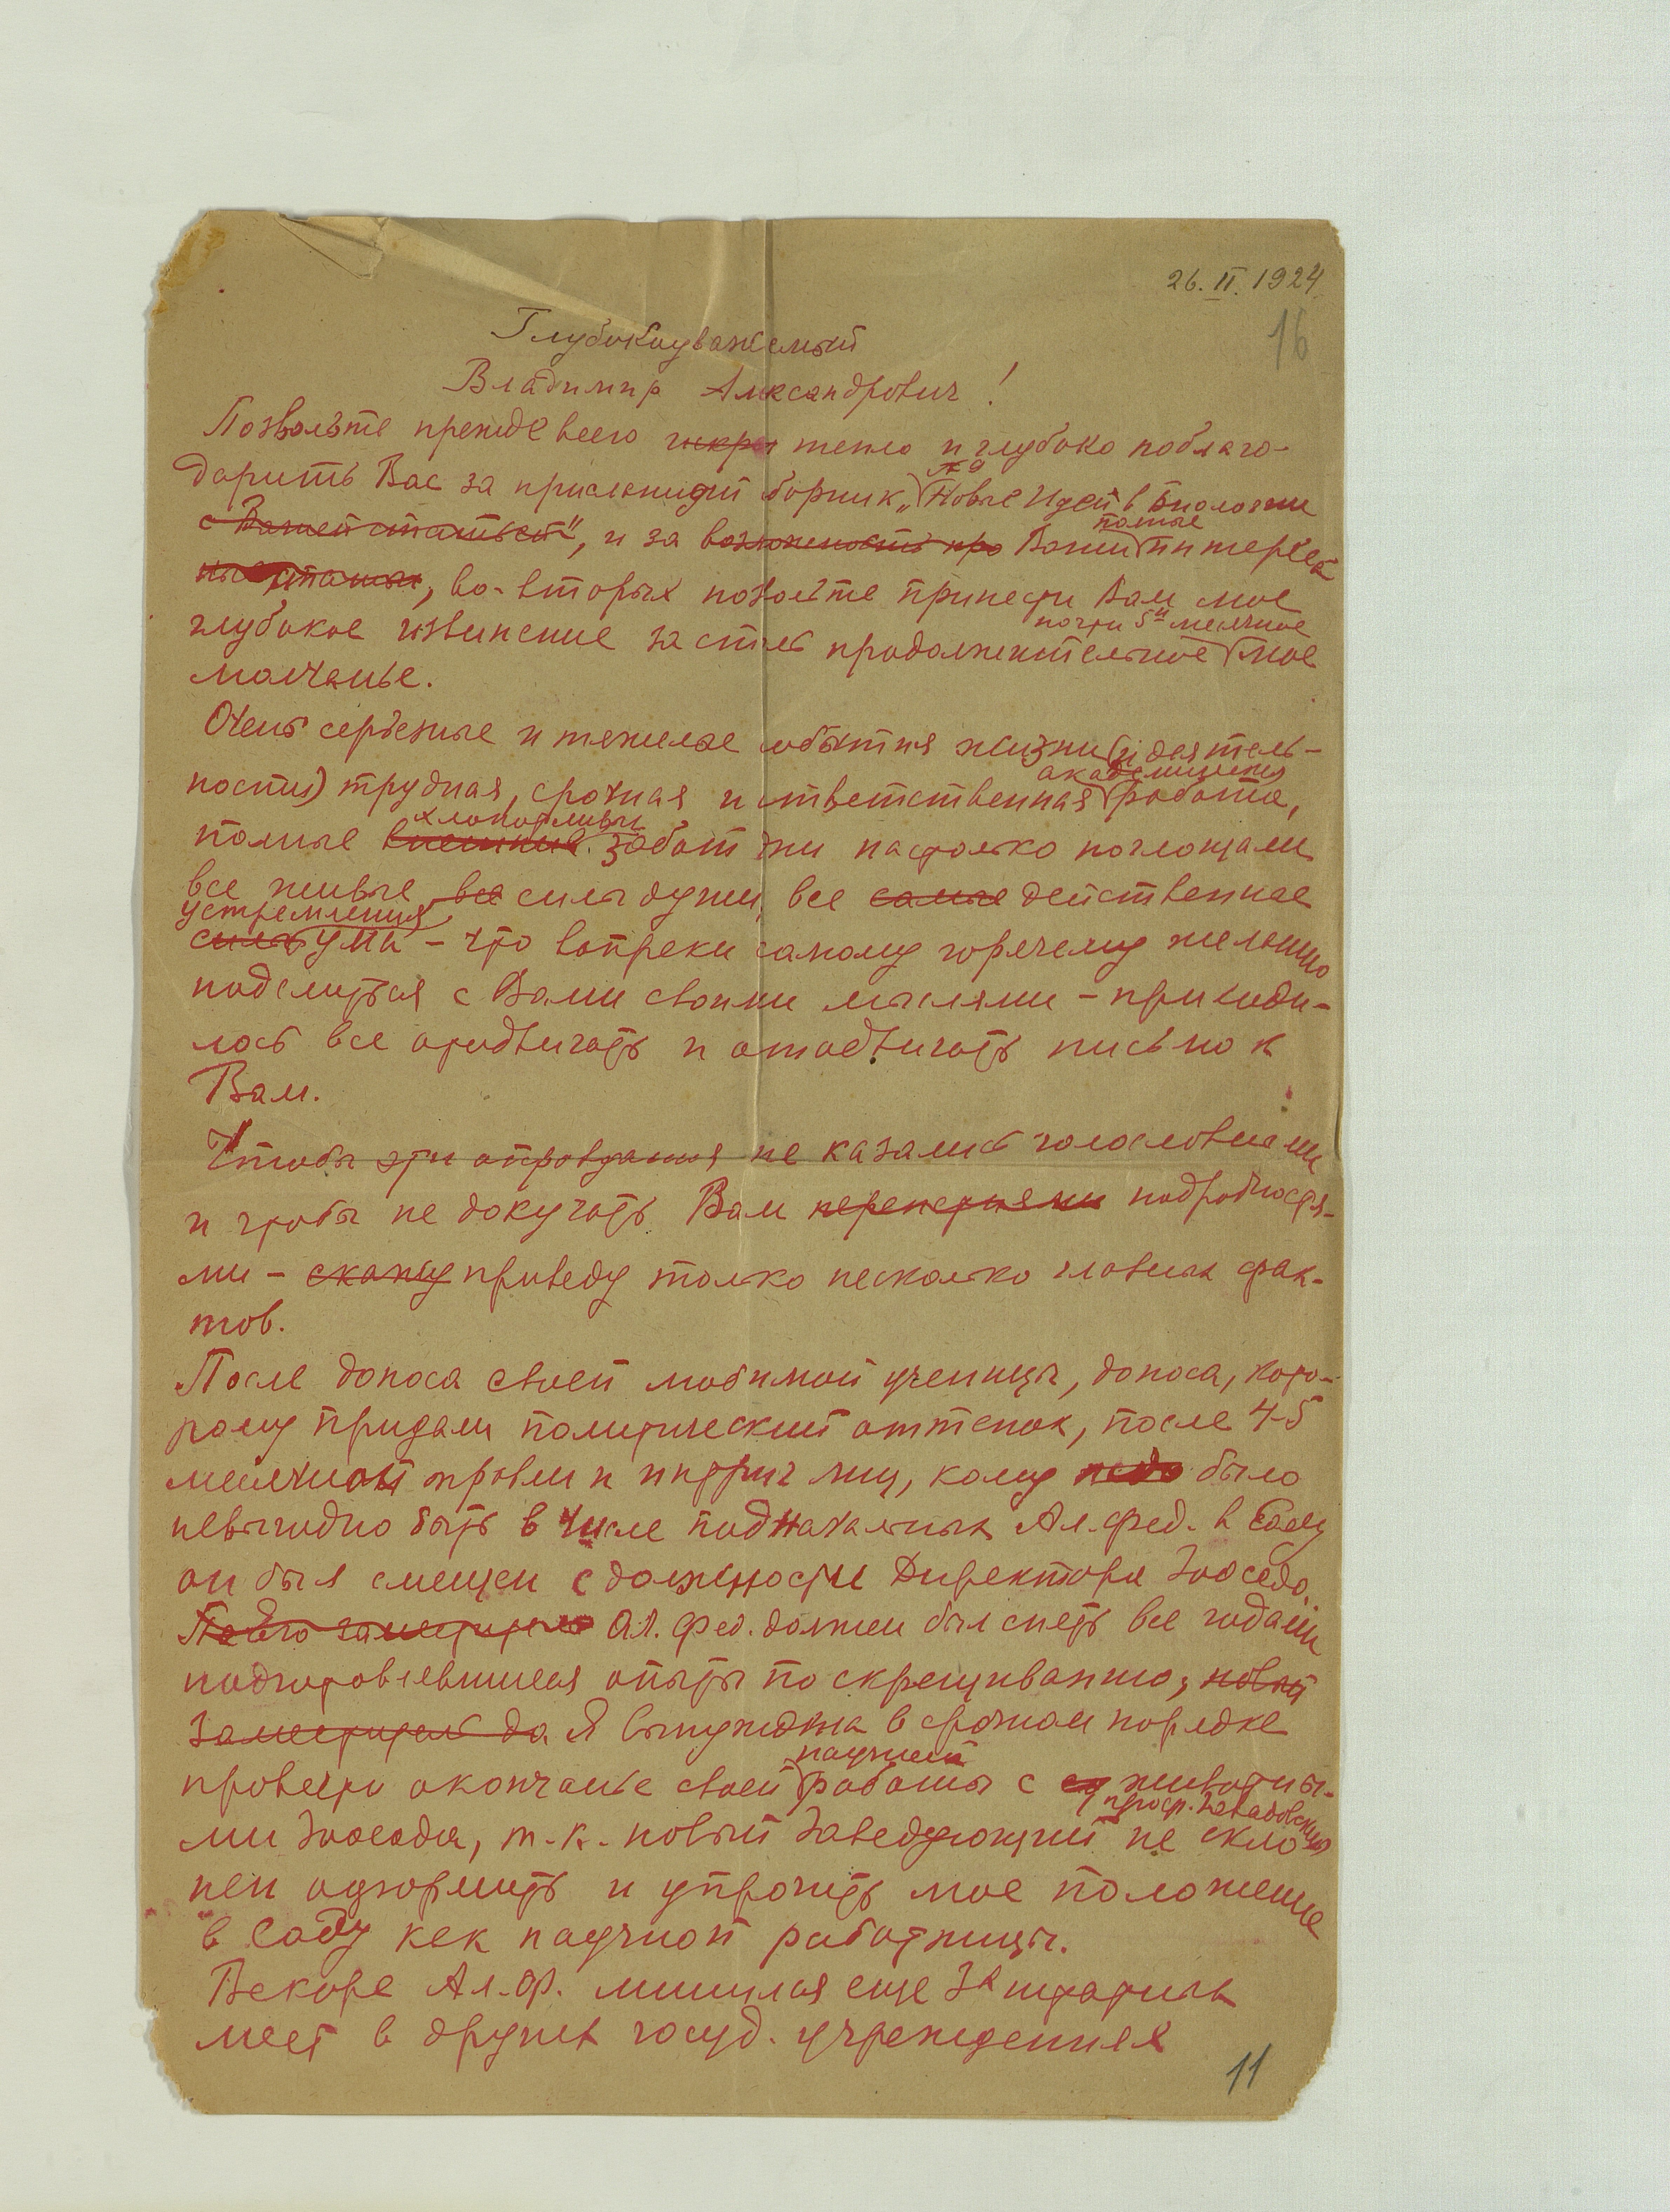 26.II.1924
16
Глубокоуважаемый
Владимир Александрович!
Позвольте прежде всего искр тепло и глубоко поблаго-
№ 9
дарить Вас за присланный сборник „Новые Идеи в Биологии
с Вашей статьей", и за возможность про Ваши полные интереса
ные статьи, во-вторых позвольте принести Вам мое
почти 5и месячное
глубокое извинение за столь продолжительное мое
молчанье.
Очень серьезные и тяжелые события жизни (и деятель-
академическая
ности) трудная, срочная и ответственная работа,
хлопотливых
полные забот дни настолько поглощали
все живые все силы души, все самые действенные
устремления
силы ума – что вопреки самому горячему желанию
поделиться с Вами своими мыслями – приходи-
лось все отодвигать и отодвигать письмо к
Вам.
Чтобы эти оправдания не казались голословными
и чтобы не докучать Вам подробностя-
ми – скажу приведу только несколько главных фак-
тов.
После доноса своей любимой ученицы, доноса, кото-
рому придали политический оттенок, после 4-5
месячной травли и интриг лиц, кому было
невыгодно быть в числе подначальных Ал. Фед. в Саду
он был смещен с должности Директора Зоосада.
Ал. Фед. должен был снять все годами
подготовлявшиеся опыты по скрещиванию, новый
заместитель да Я вынуждена в срочном порядке
научной
провести окончанье своей работы с животны-
проф. Завадовский
ми Зоосада, т.к. новый Заведующий не скло-
нен одобрить и упрочить мое положение
в Саду как научной работницы.
Вскоре Ал. Ф. лишился еще 3х штатных
мест в других госуд. учреждениях
11